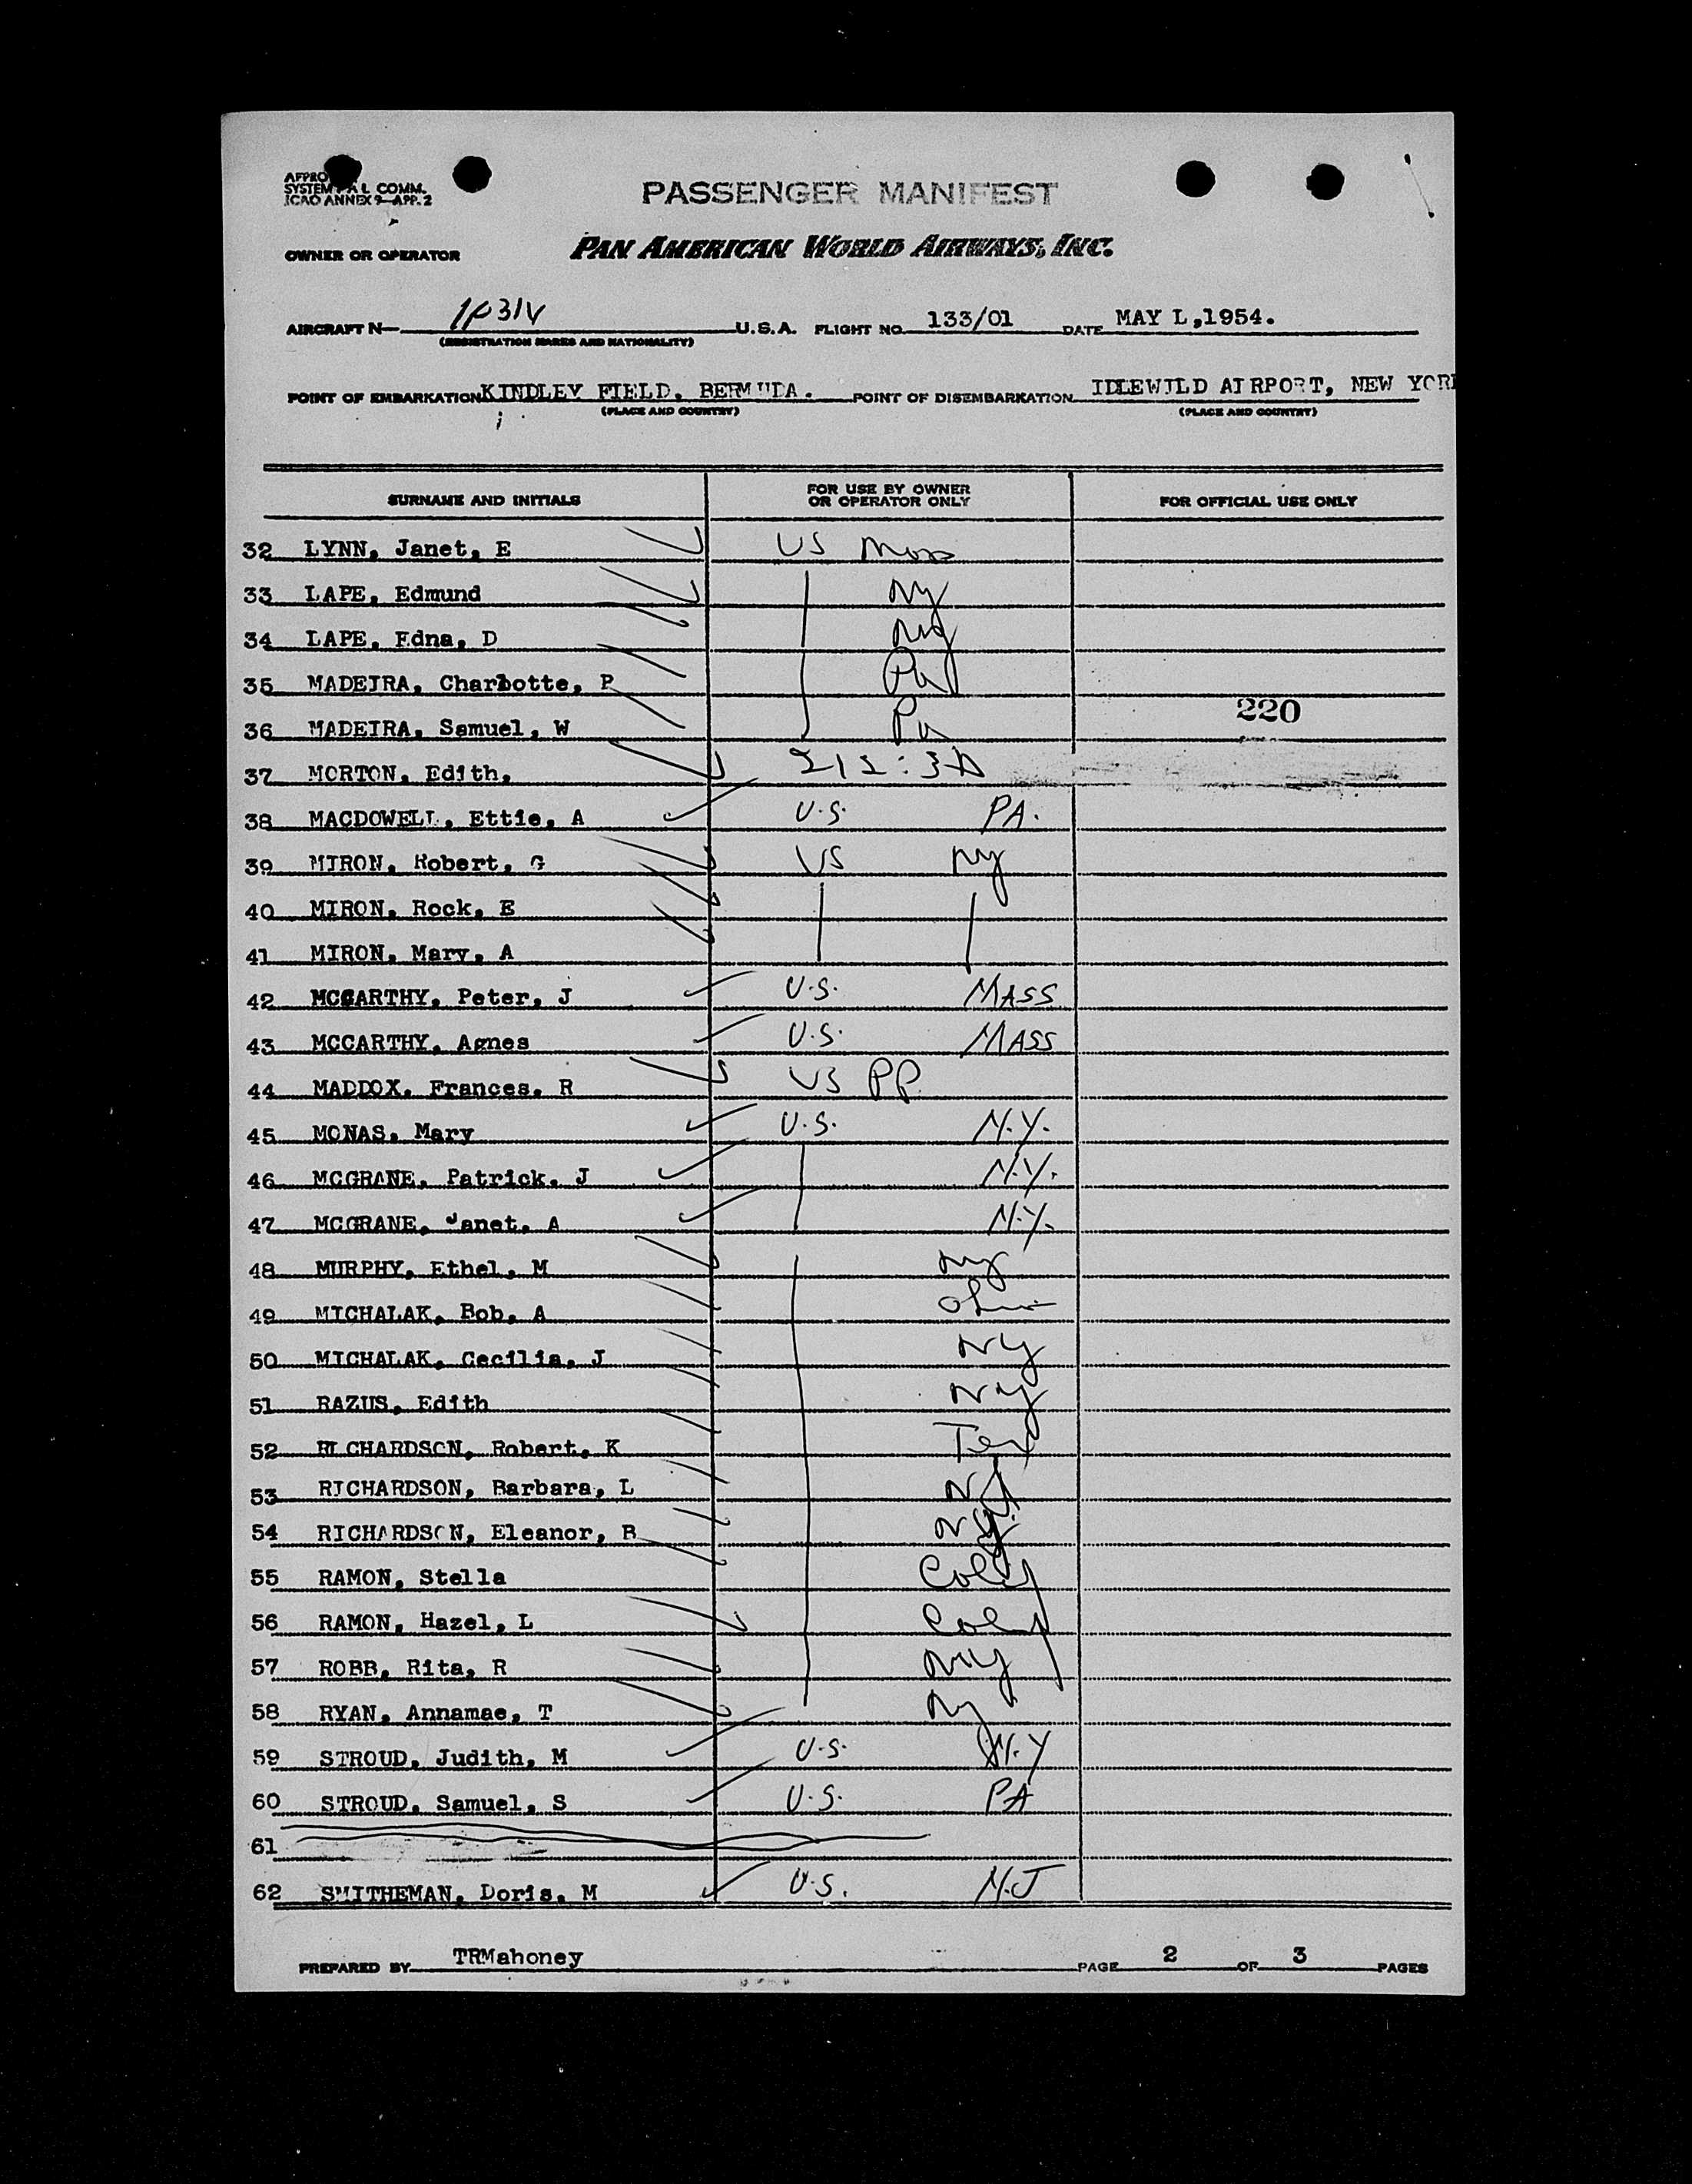 SYSTEM COMM.
ICAO ANNEX 9-APP. 2
PASSENGER MANIFEST
OWNER OR OPERATOR PAN AMERICAN WORLD AIRWAYS, INC.
AIRCRAFT N— U.S.A. FLIGHT NO. 133/01 DATE MAY L,1954.
(REGISTRATION MARKS AND NATIONALITY)
POINT OF EMBARKATION KINDLEY FIELD, BERMUDA. POINT OF DISEMBARKATION IDLEWILD AIRPORT, NEW YORK
(PLACE AND COUNTRY) (PLACE AND COUNTRY)
SURNAME AND INITIALS FOR USE BY OWNER OR OPERATOR ONLY FOR OFFICIAL USE ONLY
32 LYNN, Janet, E US Mass
33 LAPE, Edmund NY
34 LAPE, Edna, D
35 MADEIRA, Charlotte, P Pa
36 MADEIRA, Samuel, W Pa 220
37 MORTON, Edith, 212:3D
38 MACDOWELL, Ettie, A U.S. PA.
39 MIRON, Robert, G US NY
40 MIRON, Rock, E
41 MIRON, Mary, A
42 MCCARTHY, Peter, J U.S. MASS
43 MCCARTHY, Agnes U.S. MASS
44 MADDOX, Frances, R US PP
45 MONAS, Mary U.S. N.Y.
46 MCGRANE, Patrick, J N.Y.
47 MCGRANE, Janet, A N.Y.
48 MURPHY, Ethel, M NY
49 MICHALAK, Bob, A Ohio
50 MICHALAK, Cecilia, J NY
51 RAZUS, Edith NY
52 RICHARDSON, Robert, K Tex
53 RICHARDSON, Barbara, L
54 RICHARDSON, Eleanor, B NY
55 RAMON, Stella Colo
56 RAMON, Hazel, L Colo
57 ROBB, Rita, R NY
58 RYAN, Annamae, T NY
59 STROUD, Judith, M U.S. N.Y
60 STROUD, Samuel, S U.S. PA
61
62 SMITHEMAN, Doris, M U.S. N.J
PREPARED BY TRMahoney PAGE 2 OF 3 PAGES